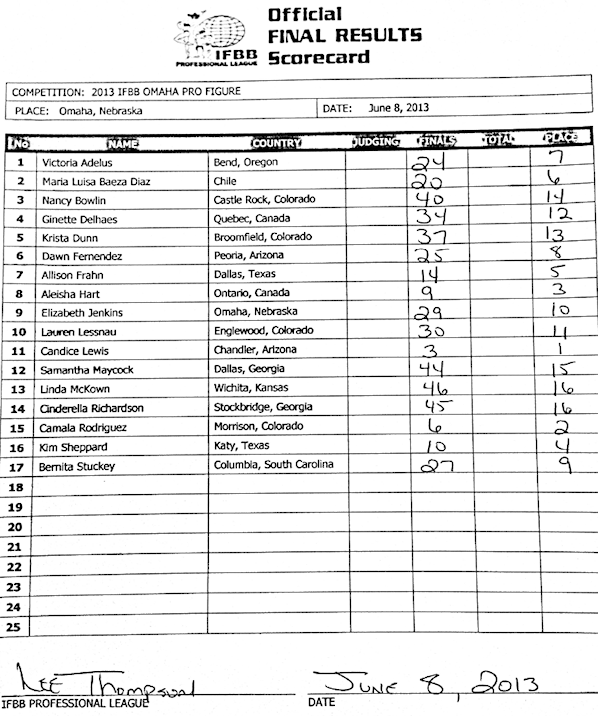 Official
FINAL RESULTS
Scorecard
IFBB
PROFESSIONAL LEAGUE
COMPETITION: 2013 IFBB OMAHA PRO FIGURE
PLACE: Omaha, Nebraska DATE: June 8, 2013
No NAME COUNTRY JUDGING FINALS TOTAL PLACE
1 Victoria Adelus Bend, Oregon 24 7
2 Maria Luisa Baeza Diaz Chile 20 6
3 Nancy Bowlin Castle Rock, Colorado 40 14
4 Ginette Delhaes Quebec, Canada 34 12
5 Krista Dunn Broomfield, Colorado 37 13
6 Dawn Fernendez Peoria, Arizona 25 8
7 Allison Frahn Dallas, Texas 14 5
8 Aleisha Hart Ontario, Canada 9 3
9 Elizabeth Jenkins Omaha, Nebraska 29 10
10 Lauren Lessnau Englewood, Colorado 30 11
11 Candice Lewis Chandler, Arizona 3 1
12 Samantha Maycock Dallas, Georgia 44 15
13 Linda McKown Wichita, Kansas 46 16
14 Cinderella Richardson Stockbridge, Georgia 45 16
15 Camala Rodriguez Morrison, Colorado 6 2
16 Kim Sheppard Katy, Texas 10 4
17 Bernita Stuckey Columbia, South Carolina 27 9
18
19
20
21
22
23
24
25
Lee Thompson June 8, 2013
IFBB PROFESSIONAL LEAGUE DATE